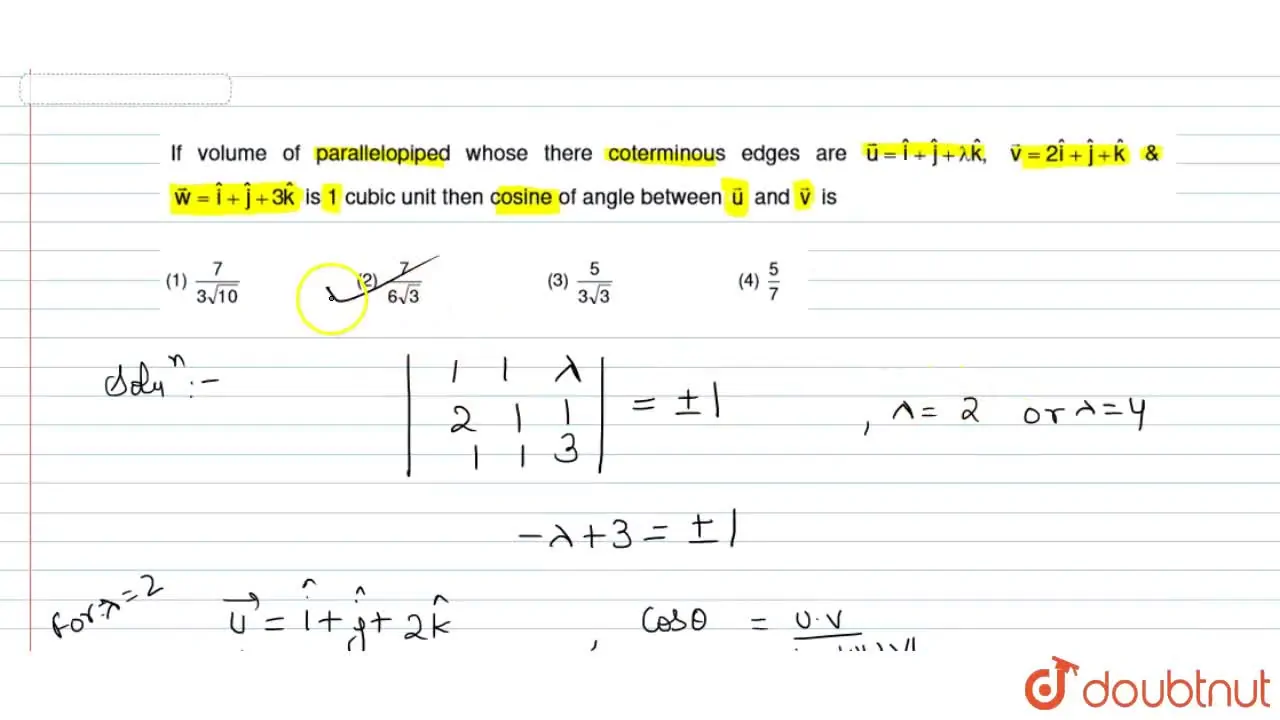 If volume of parallelopiped whose there coterminous edges are u⃗ = î + ĵ + λk̂, v⃗ = 2î + ĵ + k̂ &
w⃗ = î + ĵ + 3k̂ is 1 cubic unit then cosine of angle between u⃗ and v⃗ is
(1) 7/(3√10) (2) 7/(6√3) (3) 5/(3√3) (4) 5/7
Soluⁿ :-
1 1 λ
2 1 1 = ±1 , λ = 2 or λ = 4
1 1 3
-λ + 3 = ±1
For λ = 2 u⃗ = î + ĵ + 2k̂ , Cosθ = u.v
doubtnut